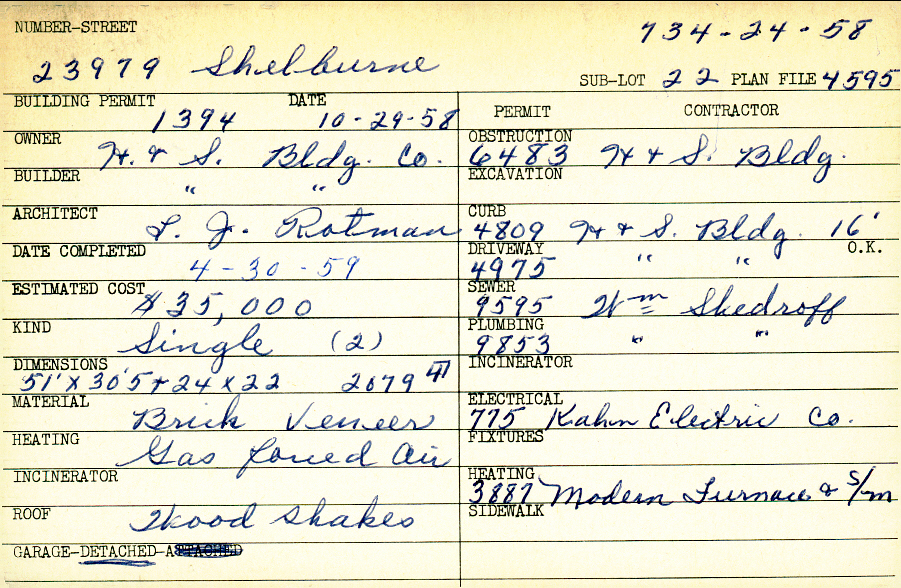 NUMBER-STREET 734-24-58
23979 Shelburne
SUB-LOT 22 PLAN FILE 4595
BUILDING PERMIT DATE
1394 10-29-58
OWNER
H. & S. Bldg. Co.
BUILDER
" "
ARCHITECT
L. J. Rotman
DATE COMPLETED
4-30-59
ESTIMATED COST
$35,000
KIND
Single (2)
DIMENSIONS
51' X 30'5 + 24 X 22 2679
MATERIAL
Brick Veneer
HEATING
Gas forced Air
INCINERATOR
ROOF
Wood Shakes
GARAGE-DETACHED-ATTACHED
PERMIT CONTRACTOR
OBSTRUCTION
6483 H & S. Bldg.
EXCAVATION
CURB
4809 H & S. Bldg. 16'
DRIVEWAY O.K.
4975 " "
SEWER
9595 Wm Skedroff
PLUMBING
9853 " "
INCINERATOR
ELECTRICAL
775 Kahn Electric Co.
FIXTURES
HEATING
3887 Modern Furnace & S/m
SIDEWALK